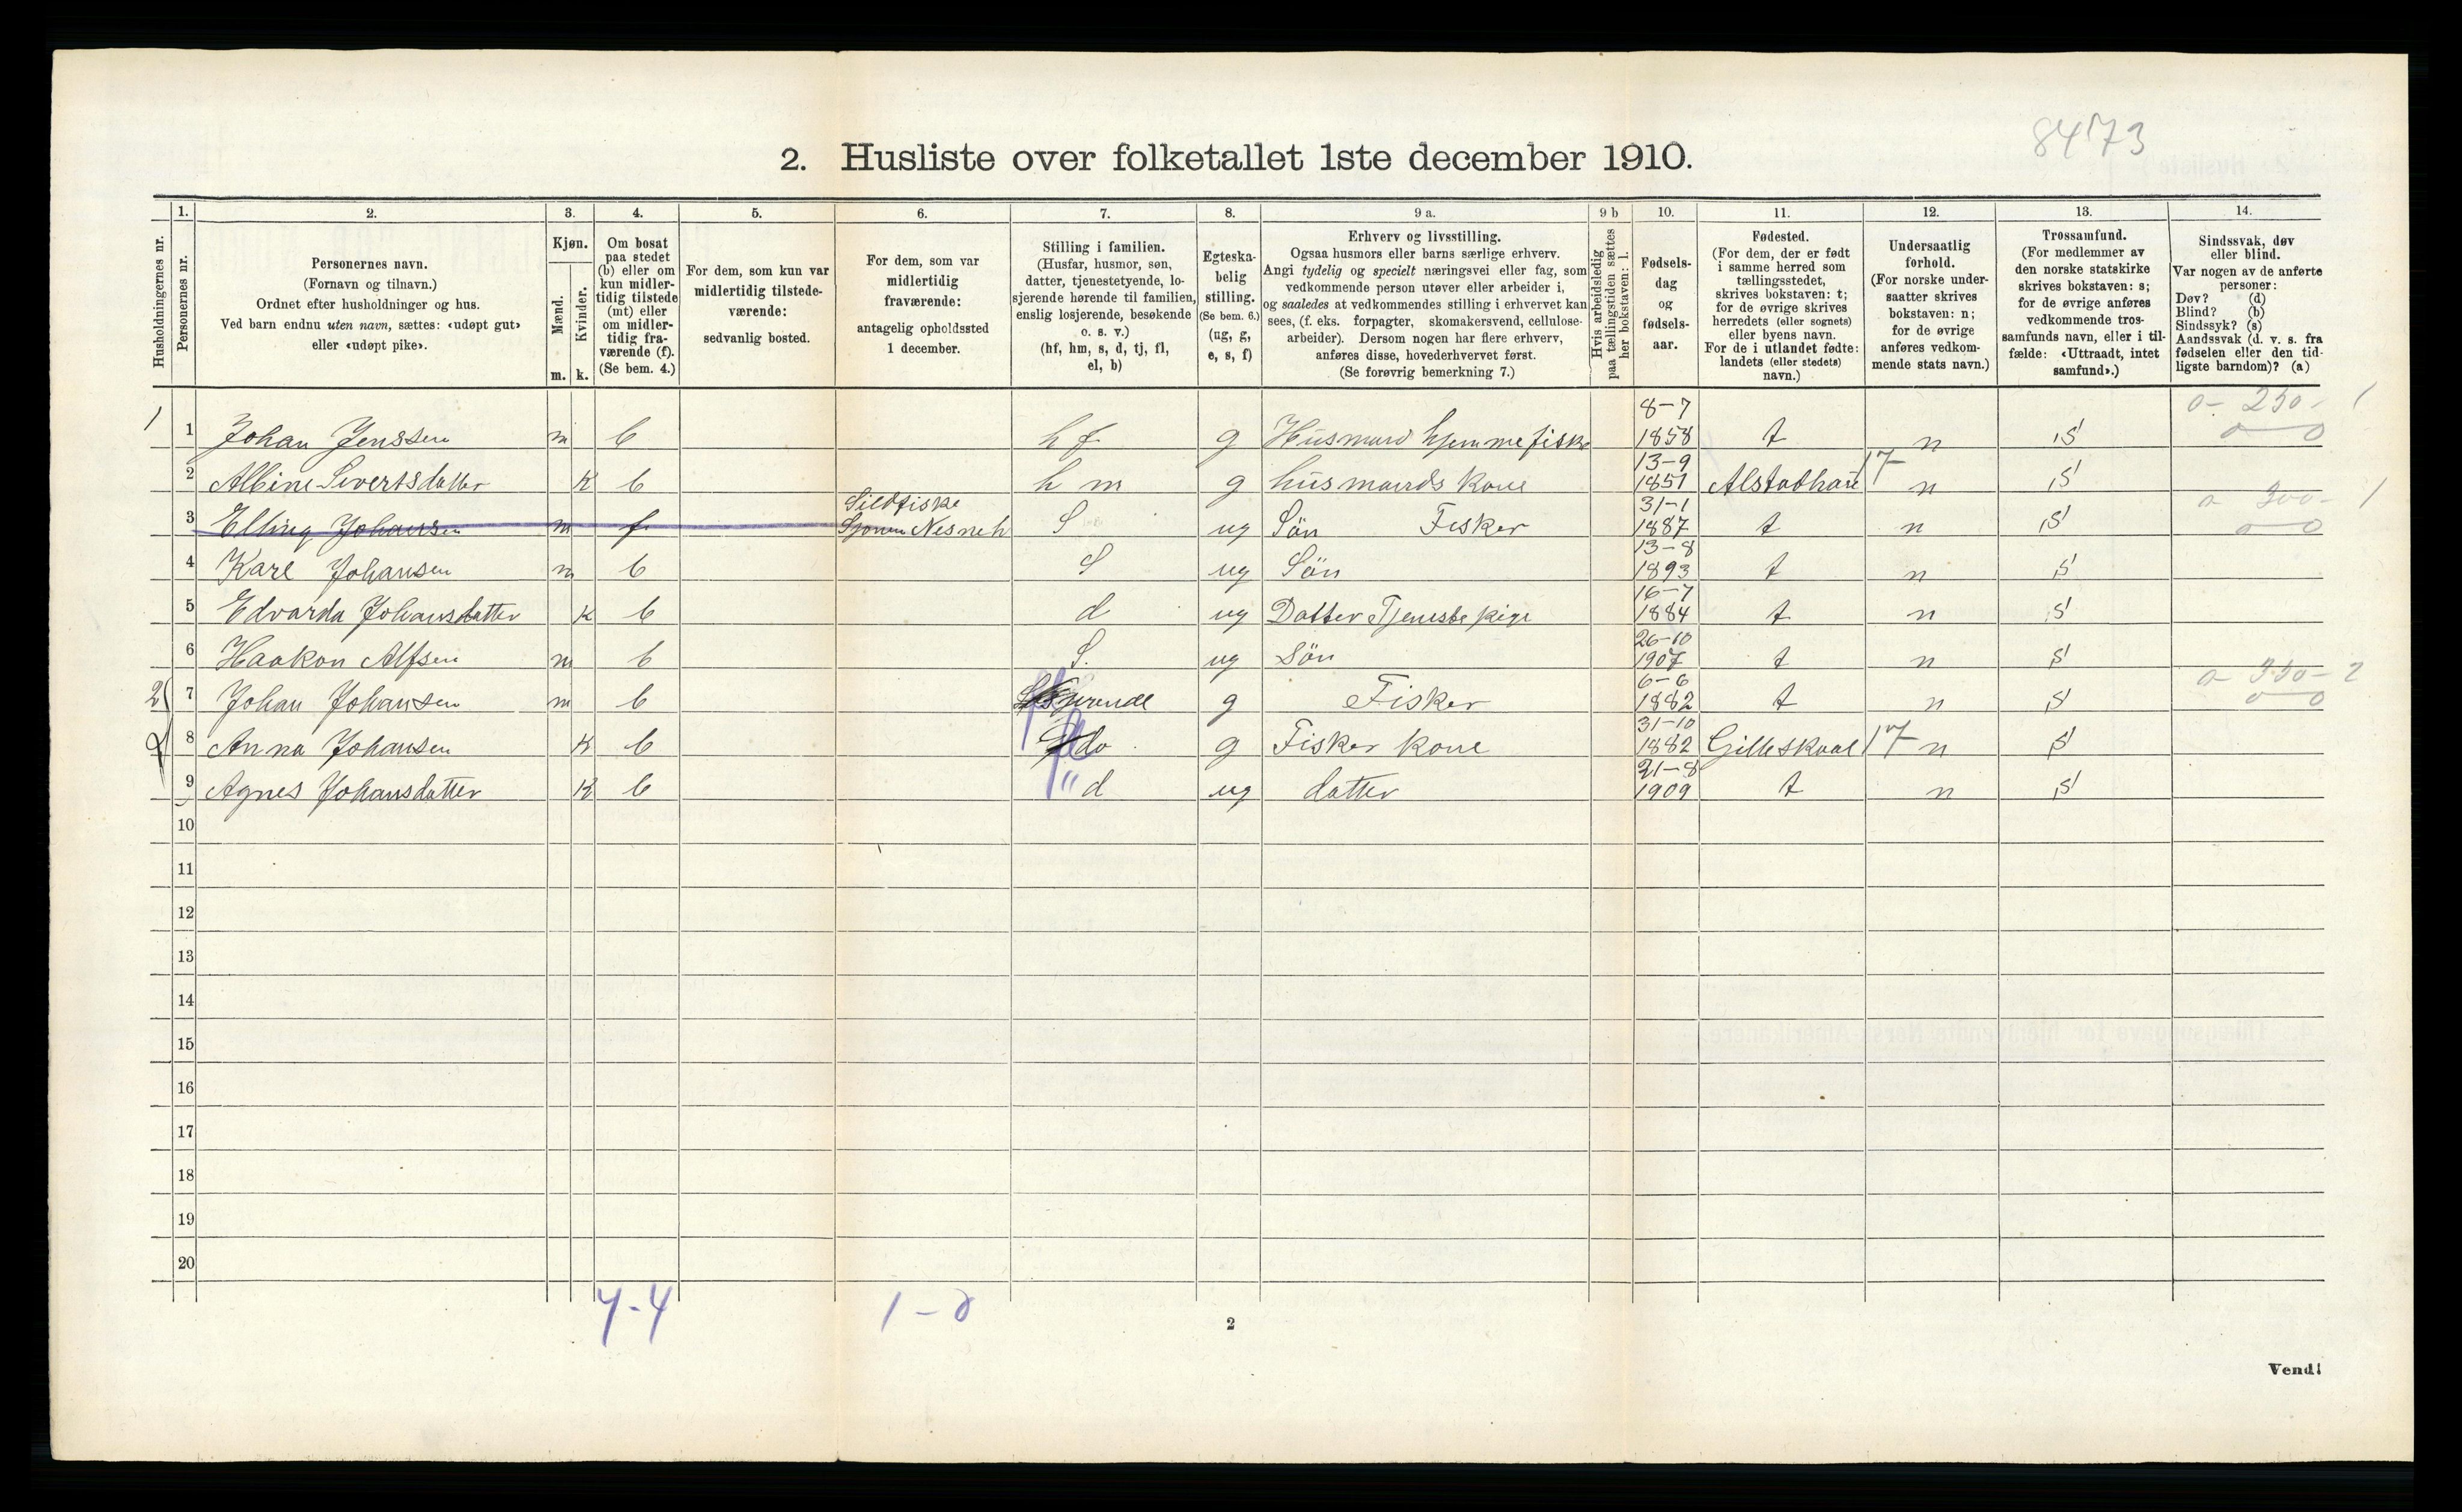 8473
2. Husliste over folketallet 1ste december 1910.
Husholdningernes nr.
1.
Personernes nr.
2.
Personernes navn.
(Fornavn og tilnavn.)
Ordnet efter husholdninger og hus.
Ved barn endnu uten navn, sættes: «udøpt gut»
eller «udøpt pike».
3.
Kjøn.
Mænd.
Kvinder.
m. k.
4.
Om bosat
paa stedet
(b) eller om
kun midler-
tidig tilstede
(mt) eller
om midler-
tidig fra-
værende (f).
(Se bem. 4.)
5.
For dem, som kun var
midlertidig tilstede-
værende:
sedvanlig bosted.
6.
For dem, som var
midlertidig
fraværende:
antagelig opholdssted
1 december.
7.
Stilling i familien.
(Husfar, husmor, søn,
datter, tjenestetyende, lo-
sjerende hørende til familien,
enslig losjerende, besøkende
o. s. v.)
(hf, hm, s, d, tj, fl,
el, b)
8.
Egteska-
belig
stilling.
(Se bem. 6.)
(ug, g,
e, s, f)
9 a.
Erhverv og livsstilling.
Ogsaa husmors eller barns særlige erhverv.
Angi tydelig og specielt næringsvei eller fag, som
vedkommende person utøver eller arbeider i,
og saaledes at vedkommendes stilling i erhvervet kan
sees, (f. eks. forpagter, skomakersvend, cellulose-
arbeider). Dersom nogen har flere erhverv,
anføres disse, hovederhvervet først.
(Se forøvrig bemerkning 7.)
9 b
Hvis arbeidsledig
paa tællingstiden sættes
her bokstaven: l.
10.
Fødsels-
dag
og
fødsels-
aar.
11.
Fødested.
(For dem, der er født
i samme herred som
tællingsstedet,
skrives bokstaven: t;
for de øvrige skrives
herredets (eller sognets)
eller byens navn.
For de i utlandet fødte:
landets (eller stedets)
navn.)
12.
Undersaatlig
forhold.
(For norske under-
saatter skrives
bokstaven: n;
for de øvrige
anføres vedkom-
mende stats navn.)
13.
Trossamfund.
(For medlemmer av
den norske statskirke
skrives bokstaven: s;
for de øvrige anføres
vedkommende tros-
samfunds navn, eller i til-
fælde: «Uttraadt, intet
samfund».)
14.
Sindssvak, døv
eller blind.
Var nogen av de anførte
personer:
Døv? (d)
Blind? (b)
Sindssyk? (s)
Aandssvak (d. v. s. fra
fødselen eller den tid-
ligste barndom)? (a)
1 1 Johan Jenssen m b h f g Husmand hjemmefisker 8-7 1858 t n S 0- 250- 1 0 0
2 Albine Sivertsdatter K b h m g husmands Kone 13-9 1851 Alstadhaug 17 n S
3 Elling Johansen m f Sildfiske Sjonen Nesneh S ug Sön Fisker 31-1 1887 t n S 0 300- 1 0 0
4 Karl Johansen m b S ug Sön 13-8 1893 t n S
5 Edvarda Johansdatter K b d ug Datter Tjeneste pige 16-7 1884 t n S
6 Haakon Alfsen m b S. ug Sön 26-10 1907 t n S
2 7 Johan Johansen m b g Fisker 6-6 1882 t n S 0 350- 2 0 0
8 Anna Johansen K b fl do g Fisker kone 31-10 1882 Gilleskaal 17 n S
9 Agnes Johansdatter K b " d ug datter 21-8 1909 t n S
10
11
12
13
14
15
16
17
18
19
20
4-4
1-0
2
Vend!